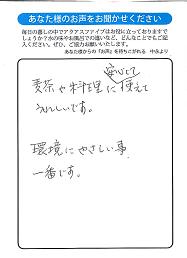 あなた様のお声をお聞かせください
毎日の暮しの中でアクアスファイブはお役に立っておりますで
しょうか？水の味やお風呂での違いなど、どんなことでもご記
入ください。ぜひ、ご協力お願いいたします。
あなた様からの「お声」を待ちこがれる 中永より
安心して
麦茶や料理に使えて
うれしいです。
環境にやさしい事
一番です。